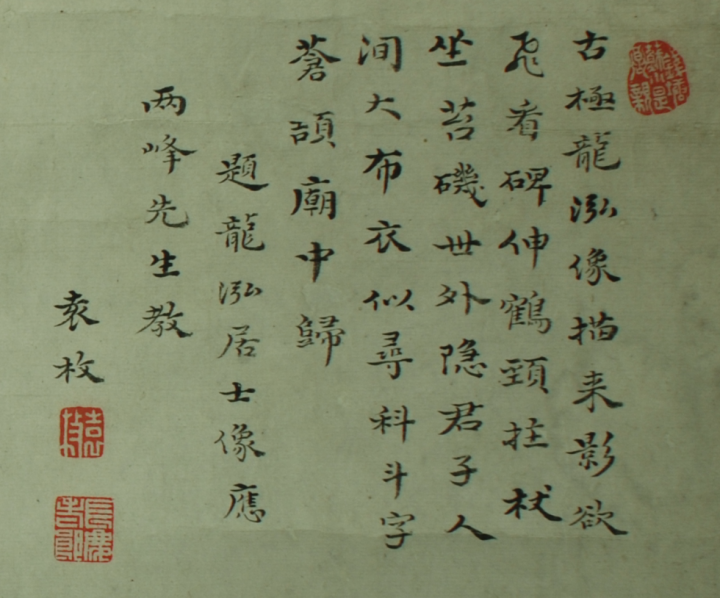 古極龍泓像描来影欲
飛看碑伸鶴頸拄杖
坐苔磯世外隐君子人
间大布衣似尋科斗字
蒼頡廟中歸
題龍泓居士像應
两峰先生教
袁枚